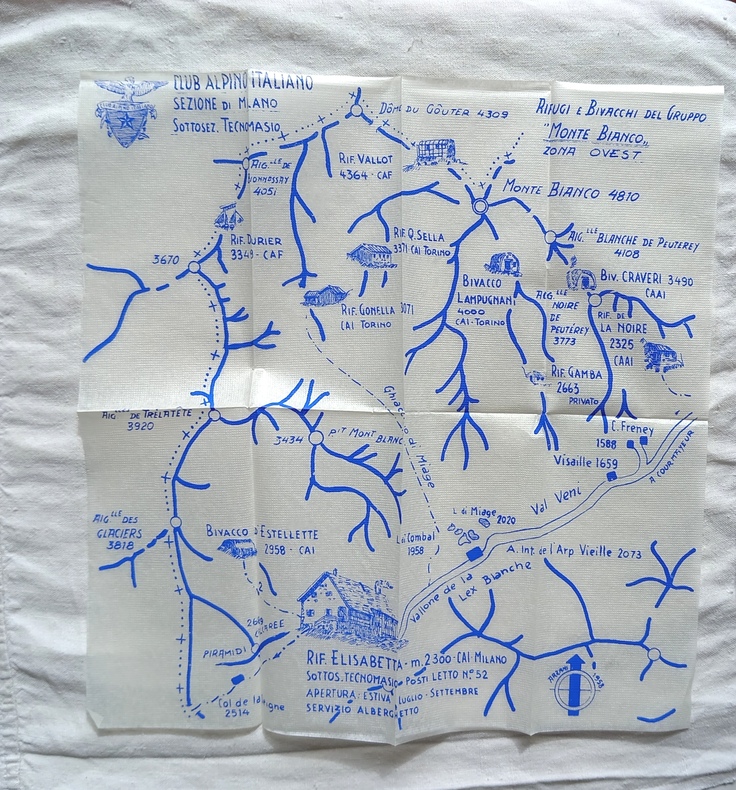 CLUB ALPINO ITALIANO
SEZIONE DI MILANO
SOTTOSEZ. TECNOMASIO
RIFUGI E BIVACCHI DEL GRUPPO
"MONTE BIANCO"
ZONA OVEST
DÔME DU GÔUTER 4309
RIF. VALLOT
4364 - CAF
AIG.LLE DE
4051
MONTE BIANCO 4810
RIF. DURIER
3349 - CAF
3670
RIF. Q. SELLA
3371 - CAI TORINO
AIG.LLE BLANCHE DE PEUTEREY
4108
BIVACCO
LAMPUGNANI
4000
CAI-TORINO
BIV. CRAVERI 3490
CAAI
AIG.LLE
NOIRE
DE
PEUTÉREY
3773
RIF. DE
LA NOIRE
2325
CAAI
RIF. GONELLA 3071
CAI TORINO
RIF. GAMBA
2663
PRIVATO
Ghiacciaio di Miage
AIG.LLE DE TRÉLATÊTE
3920
3434
P.T MONT BLANC
C. Freney
1588
Visaille 1659
A COURMAYEUR
Val Veni
L. di Miage 2020
AIG.LLE DES
GLACIERS
3818
BIVACCO D'ESTELLETTE
2958 - CAI
L. di Combal
1958
A. Int. de l'Arp Vieille 2073
Vallone de la
Lex Blanche
PIRAMIDI
CALCAREE
Col de la Seigne
2514
RIF. ELISABETTA - m. 2300 - CAI MILANO
SOTTOS. TECNOMASIO - POSTI LETTO N° 52
APERTURA: ESTIVA LUGLIO - SETTEMBRE
SERVIZIO ALBERGHETTO